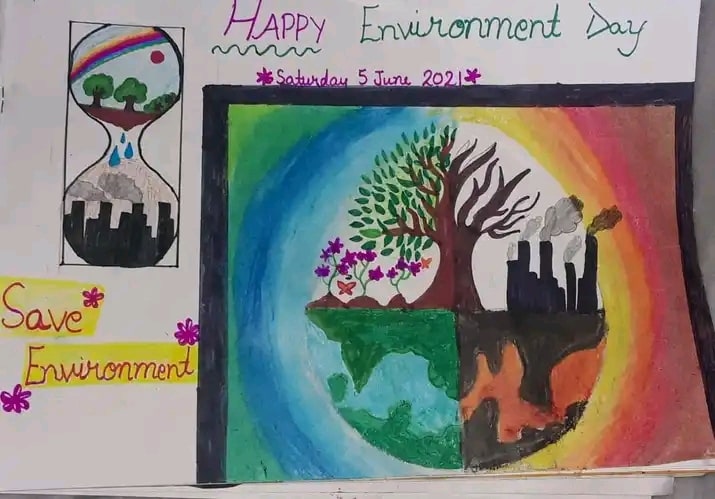 HAPPY Environment Day
Saturday 5 June 2021
Save
Environment